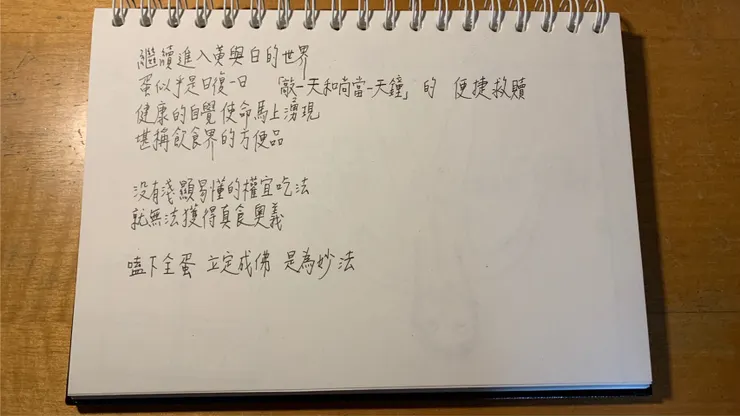 繼續進入黃與白的世界
蛋似乎是日復一日 「敲一天和尚當一天鐘」的 便捷救贖
健康的自覺使命馬上湧現
堪稱飲食界的方便品
没有淺顯易懂的權宜吃法
就無法獲得真食奧義
嗑下全蛋 立定成佛 是為妙法